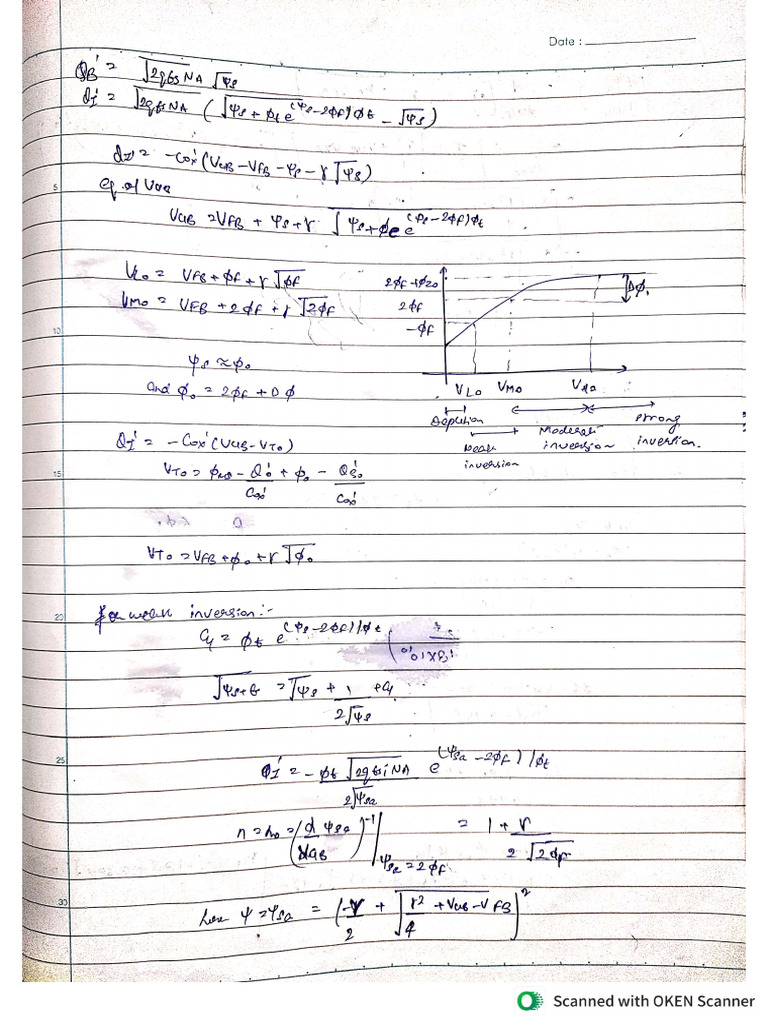 Date :
Q_B' = √(2qεs NA) √ψs
Q_I' = √(2qεs NA) ( √(ψs + φt e^(ψs-2φf)/φt) - √ψs )
Q_I' = -Cox' (VGB - VFB - ψs - γ√ψs)
5
eq. of VGB
VGB = VFB + ψs + γ √(ψs + φt e^(ψs-2φf)/φt)
VL0 = VFB + φf + γ√φf
VM0 = VFB + 2φf + γ√2φf
2φf + φZ0
2φf
-φf
Dφ.
10
ψs ≈ φ0
and φ0 = 2φf + Dφ
VL0 VM0 VH0
Depletion
weak inversion
Moderate inversion
strong inversion.
Q_I' = -Cox' (VGB - VT0)
15
VT0 = φMS - Q0'/Cox' + φ0 - QB0'/Cox'
VT0 = VFB + φ0 + γ√φ0
20
for weak inversion :-
G = φt e^(ψs-2φf)/φt
√(ψs+G) = √ψs + 1/(2√ψs) + G
25
Q_I' = -φt √(2qεsi NA)/(2√ψsa) e^(ψsa-2φf)/φt
n = n0 = (d ψsa/dVGB)^-1 |ψsa = 2φf = 1 + γ/(2√2φf)
30
here ψ = ψsa = (-γ/2 + √(γ²/4 + VGB - VFB))²
Scanned with OKEN Scanner